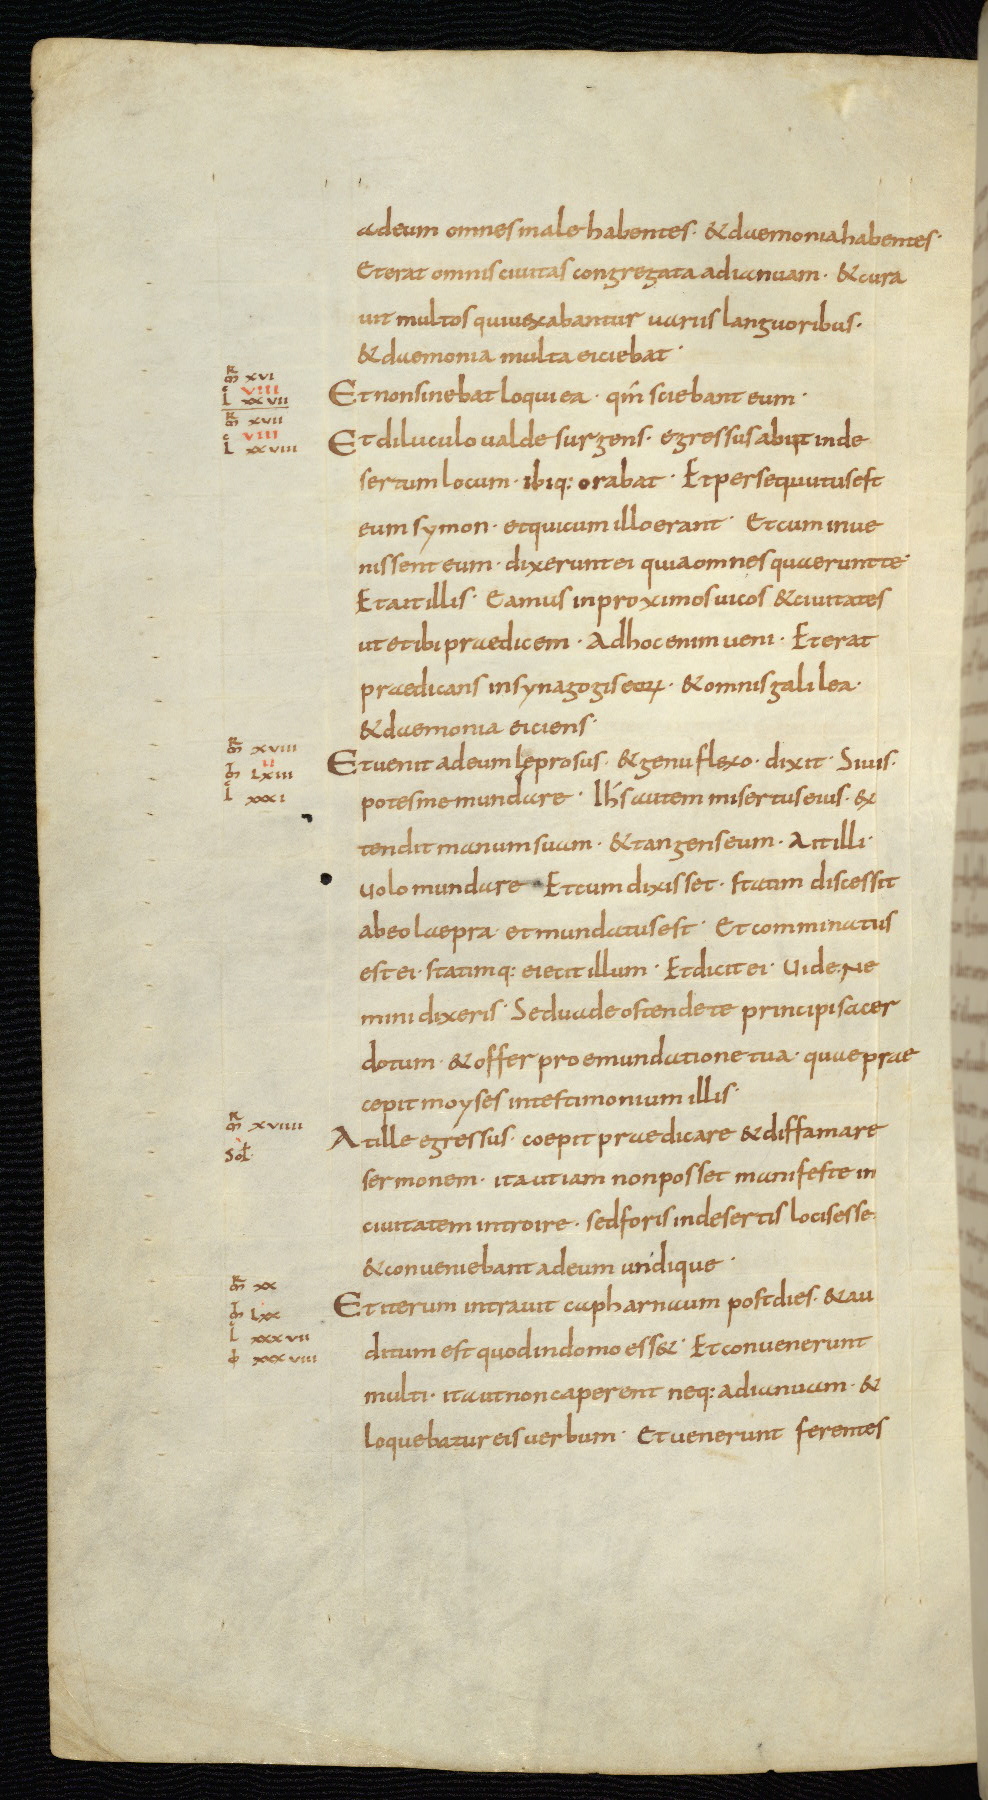 adeum omnes male habentes · & daemonia habentes ·
Et erat omnis ciuitas congregata ad ianuam · & cura
uit multos qui uexabantur uariis languoribus ·
& daemonia multa eiciebat ·
mr xvi
viii
l xxvii
Et non sinebat loqui ea · qm̄ sciebant eum ·
mr xvii
viii
l xxviii
Et diluculo ualde surgens · egressus abiit in de
sertum locum · ibiq: orabat · Et persequutus est
eum symon · et qui cum illo erant · Et cum inue
nissent eum · dixerunt ei quia omnes quaerunt te ·
Et ait illis · Eamus in proximos uicos & ciuitates
ut et ibi praedicem · Ad hoc enim ueni · Et erat
praedicans in synagogis eoꝝ · & omnis galilea ·
& daemonia eiciens ·
mr xviii
ii
m lxiii
l xxxi
Et uenit ad eum leprosus · & genu flexo · dixit · Si uis ·
potes me mundare · Ihs̄ autem misertus eius · ex
tendit manum suam · & tangens eum · Ait illi ·
Uolo mundare · Et cum dixisset · statim discessit
ab eo laepra · et mundatus est · Et comminatus
est ei · statimq: eiecit illum · Et dicit ei · Uide · Ne
mini dixeris · Sed uade ostende te principi sacer
dotum · & offer pro emundatione tua · quae prae
cepit moyses in testimonium illis ·
mr xviiii
Sol
At ille egressus · coepit praedicare & diffamare
sermonem · ita ut iam non posset manifeste in
ciuitatem introire · sed foris in desertis locis esse ·
& conueniebant ad eum undique ·
mr xx
m lxx
l xxxvii
xxxviii
Et iterum intrauit capharnaum post dies · & au
ditum est quod in domo ess& · Et conuenerunt
multi · ita ut non caperent neq: ad ianuam · &
loquebatur eis uerbum · Et uenerunt ferentes